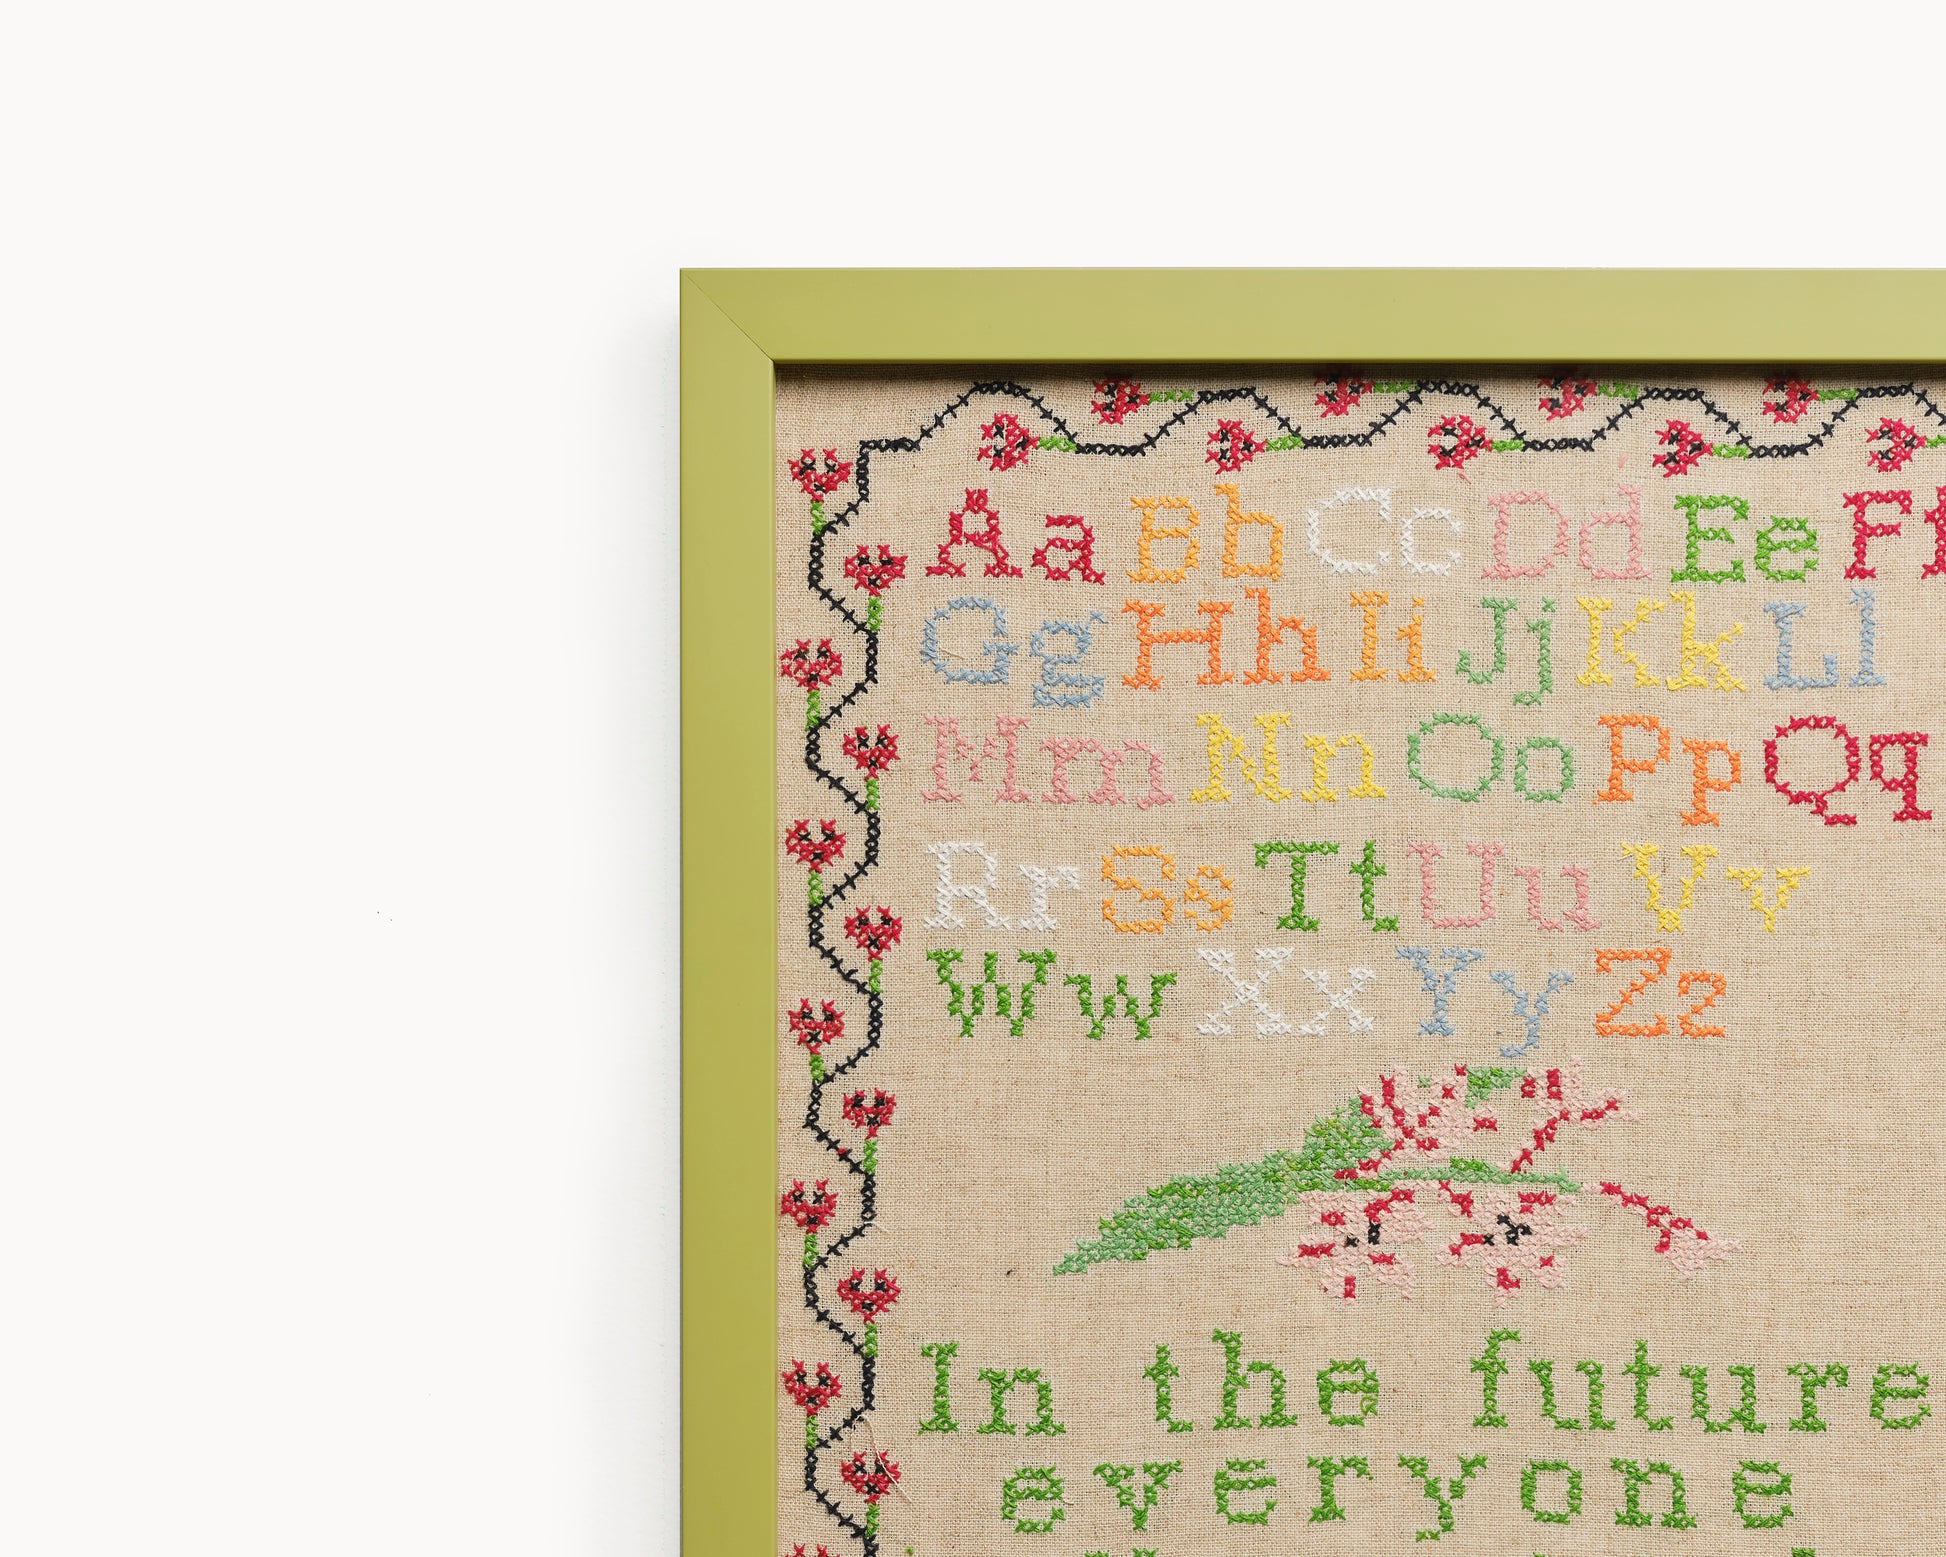 Aa Bb Cc Dd Ee Ff
Gg Hh Ii Jj Kk Ll
Mm Nn Oo Pp Qq
Rr Ss Tt Uu Vv
Ww Xx Yy Zz
In the future
everyone